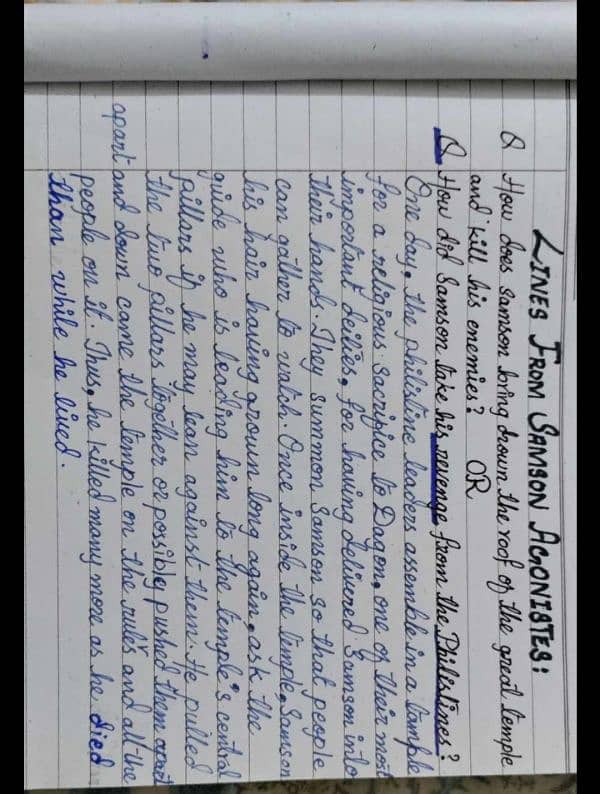 LINES FROM SAMSON AGONISTES:
Q How does Samson bring down the roof of the great temple
and kill his enemies? OR
Q How did Samson take his revenge from the Philistines?
One day, the philistine leaders assemble in a tample
for a religious sacrifice to Dagon, one of their most
important deites, for having delivered Samson into
their hands. They summon Samson so that people
can gather to watch. Once inside the temple, Samson
his hair having grown long again, ask the
guide who is leading him to the temple's central
pillars if he may lean against them. He pulled
the two pillars together or possibley pushed them apart
apart and down came the temple on the rulers and all the
people on it. Thus, he killed many more as he died
than while he lived.